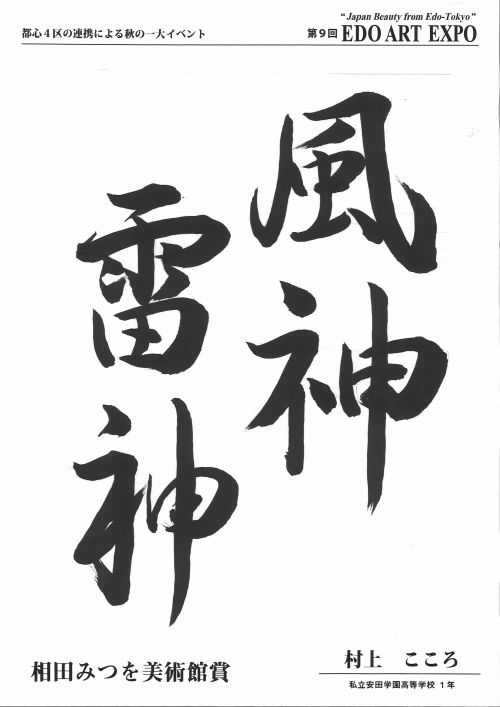 都心４区の連携による秋の一大イベント
“Japan Beauty from Edo-Tokyo”
第９回 EDO ART EXPO
風神
雷神
相田みつを美術館賞
村上　こころ
私立安田学園高等学校 １年